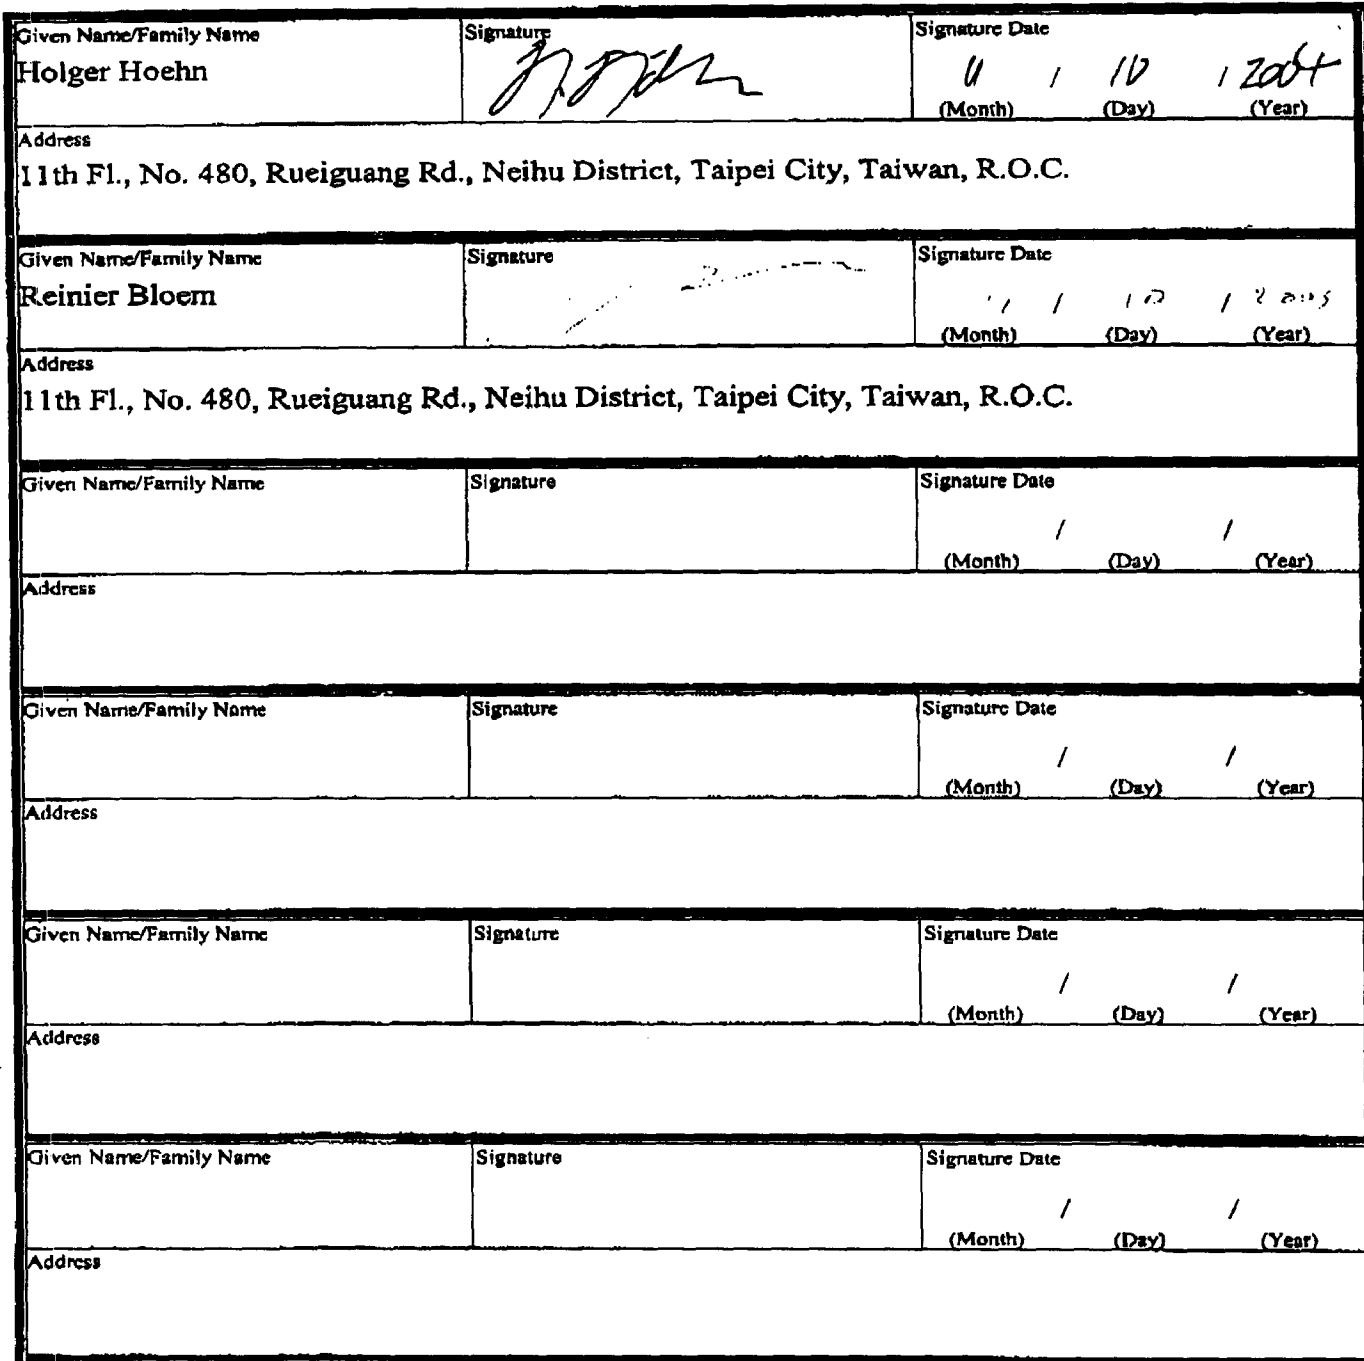 Given Name/Family Name Signature Signature Date
Holger Hoehn
11 / 10 / 2004
(Month) (Day) (Year)
Address
11th Fl., No. 480, Rueiguang Rd., Neihu District, Taipei City, Taiwan, R.O.C.
Given Name/Family Name Signature Signature Date
Reinier Bloem
/ 10 /
(Month) (Day) (Year)
Address
11th Fl., No. 480, Rueiguang Rd., Neihu District, Taipei City, Taiwan, R.O.C.
Given Name/Family Name Signature Signature Date
/ /
(Month) (Day) (Year)
Address
Given Name/Family Name Signature Signature Date
/ /
(Month) (Day) (Year)
Address
Given Name/Family Name Signature Signature Date
/ /
(Month) (Day) (Year)
Address
Given Name/Family Name Signature Signature Date
/ /
(Month) (Day) (Year)
Address